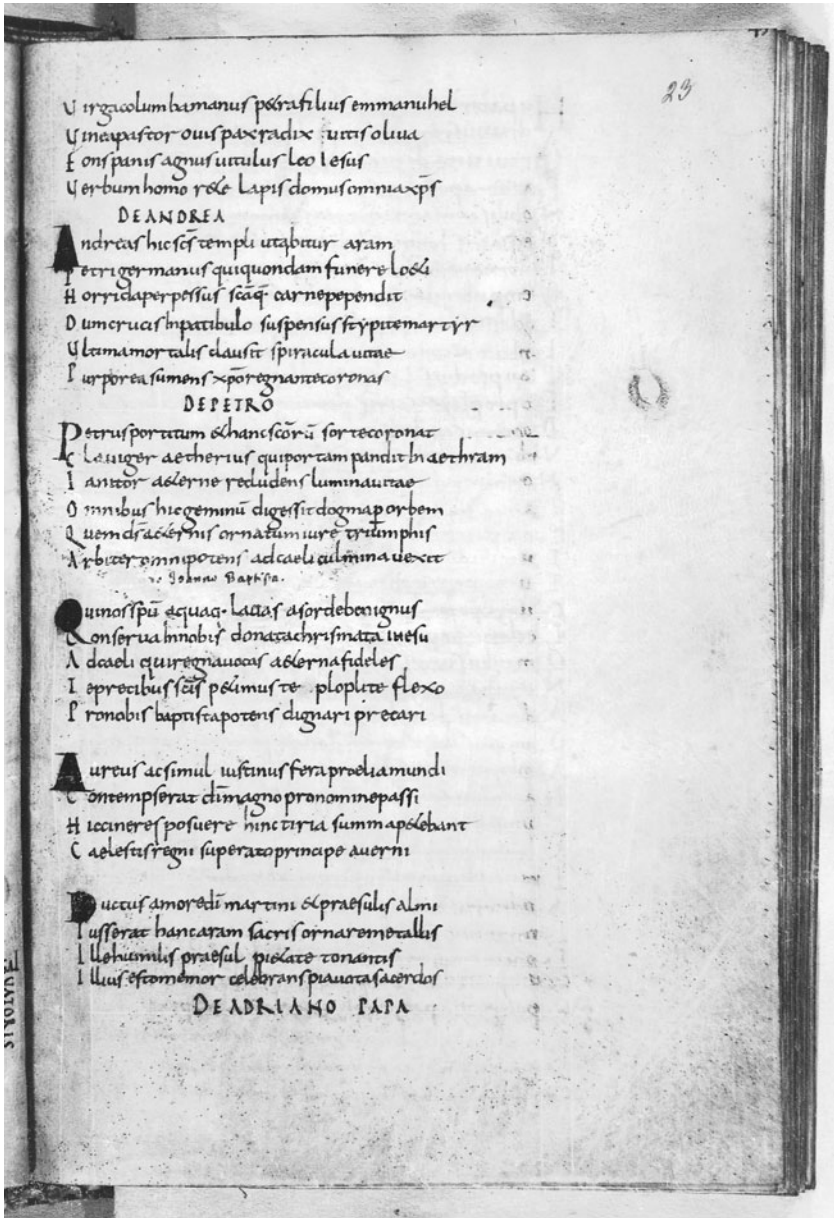 23
Virga columba manus petra filius emmanuhel
Vinea pastor ovis pax radix vitis oliva
Fons panis agnus vitulus leo Iesus
Verbum homo rete lapis domus omnia xp̄s
DE ANDREA
Andreas hic sc̄s templi utabitur aram
Petri germanus qui quondam funere loeti
Horrida perpessus sc̄aq· carne pependit
Dum crucis In patibulo suspensus stypite martyr
Ultima mortalis clausit spiracula vitae
Purpurea sumens xp̄o regnante coronas
DE PETRO
Petrus portitum et hanc sc̄orū sorte coronat
Claviger aetherius qui portam pandit In aethram
Ianitor aeterne recludens lumina vitae
Omnibus hic geminū digessit dogma p orbem
Quem d̄s aeternis ornatum iure triumphis
Arbiter omnipotens ad caeli culmina vexit
Ioanne Baptista.
Qui nos sp̄u aquaq· lavas a sorde benignus
Conserva In nobis donata chrismata iħesu
Ad caeli qui regna vocas aeterna fideles
Te precibus sc̄is petimus te ploplite flexo
Pro nobis baptista potens dignari precari
Aureus ac simul iustinus fera proelia mundi
Contempserat dī magno pro nomine passi
Hic cineres posuere hinc tiria summa petebant
Caelestis regni superato principe averni
Ductus amore dī martini et praesulis almi
Iusserat hanc aram sacris ornare metallis
Ille humilis praesul pietate tonantis
Illius esto memor celebrans pia vota sacerdos
DE ADRIANO PAPA